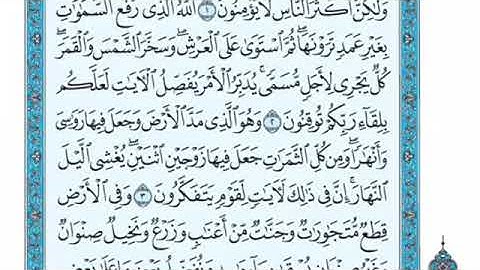 وَلَٰكِنَّ أَكْثَرَ ٱلنَّاسِ لَا يُؤْمِنُونَ ١ ٱللَّهُ ٱلَّذِى رَفَعَ ٱلسَّمَٰوَٰتِ
بِغَيْرِ عَمَدٍ تَرَوْنَهَا ۖ ثُمَّ ٱسْتَوَىٰ عَلَى ٱلْعَرْشِ ۖ وَسَخَّرَ ٱلشَّمْسَ وَٱلْقَمَرَ ۖ
كُلٌّ يَجْرِى لِأَجَلٍ مُّسَمًّى ۚ يُدَبِّرُ ٱلْأَمْرَ يُفَصِّلُ ٱلْـَٔايَٰتِ لَعَلَّكُم
بِلِقَآءِ رَبِّكُمْ تُوقِنُونَ ٢ وَهُوَ ٱلَّذِى مَدَّ ٱلْأَرْضَ وَجَعَلَ فِيهَا رَوَٰسِىَ
وَأَنْهَٰرًا ۖ وَمِن كُلِّ ٱلثَّمَرَٰتِ جَعَلَ فِيهَا زَوْجَيْنِ ٱثْنَيْنِ ۖ يُغْشِى ٱلَّيْلَ
ٱلنَّهَارَ ۚ إِنَّ فِى ذَٰلِكَ لَـَٔايَٰتٍ لِّقَوْمٍ يَتَفَكَّرُونَ ٣ وَفِى ٱلْأَرْضِ
قِطَعٌ مُّتَجَٰوِرَٰتٌ وَجَنَّٰتٌ مِّنْ أَعْنَٰبٍ وَزَرْعٌ وَنَخِيلٌ صِنْوَانٌ